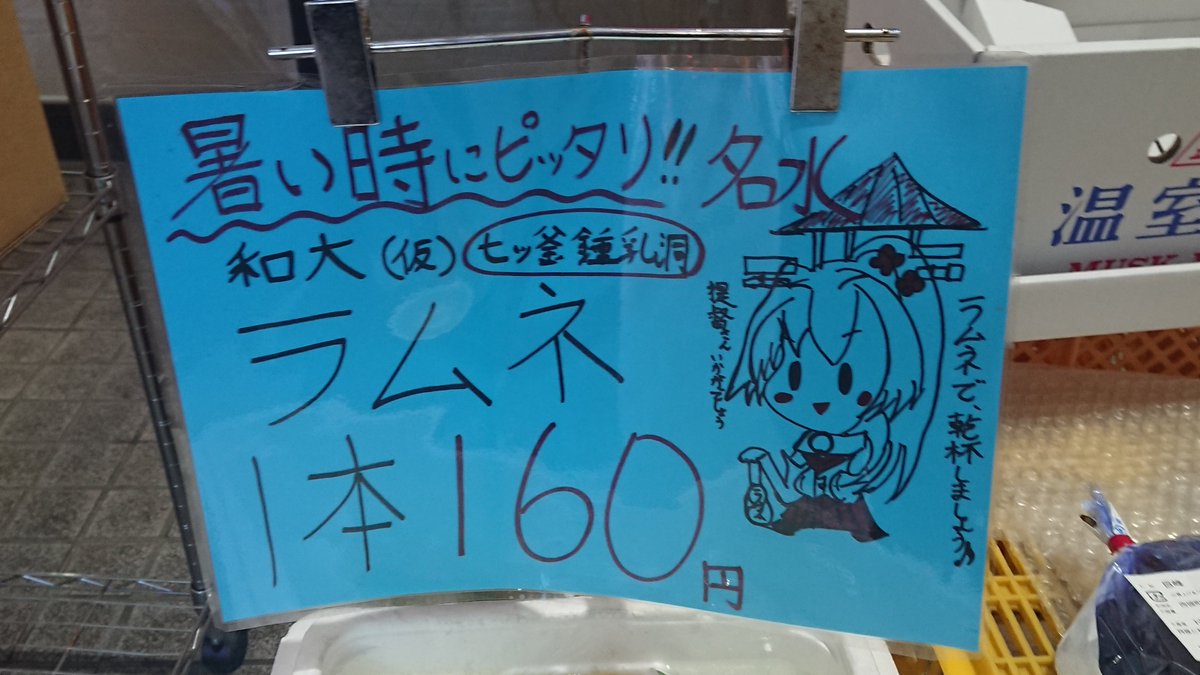 暑い時にピッタリ!! 名水
和大(仮) 七ッ釜鍾乳洞
ラムネ
1本160円
提督さんいかがでしょう
ラムネで、乾杯しましょう♪
ラムネ
温室
MUSK